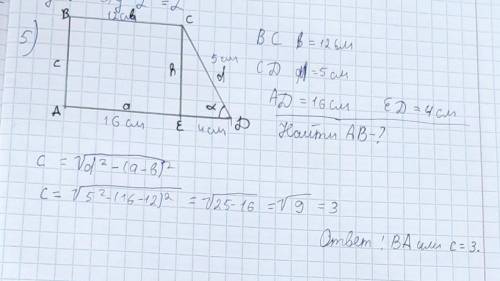 5)
B 12см в C
5см
d
c
h
α
A a E 4см D
16 см
BC в = 12см
CD d = 5см
AD = 16см ED = 4см
Найти AB-?
c = √d² - (a - в)²
c = √5² - (16 - 12)² = √25 - 16 = √9 = 3
Ответ: BA или c = 3.